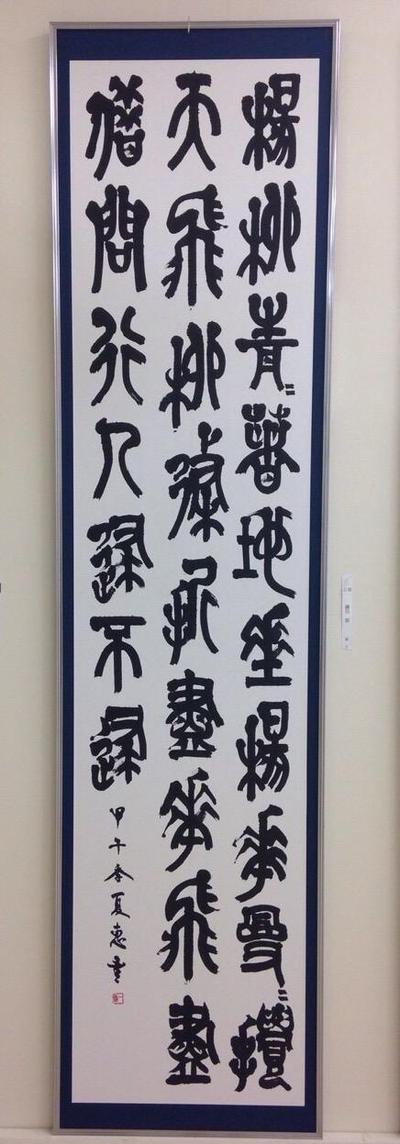 楊柳青〻著地垂楊花曼〻攪
天飛柳條折盡花飛盡
借問行人歸不歸
甲午季夏惠